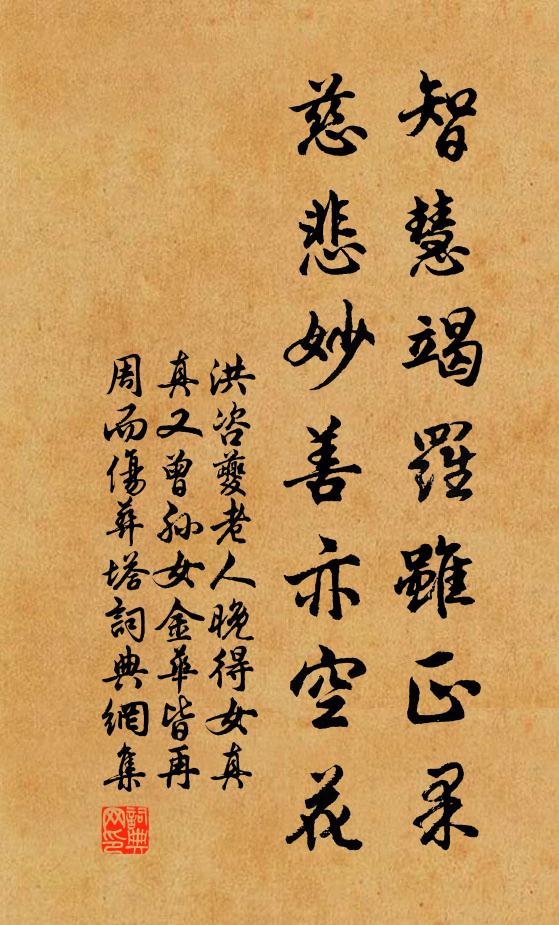 智慧竭羅雖正果
慈悲妙善亦空花
洪咨夔老人晚得女真
真又曾孙女金華皆再
周而傷葬塔詞典網集
詞典
网印